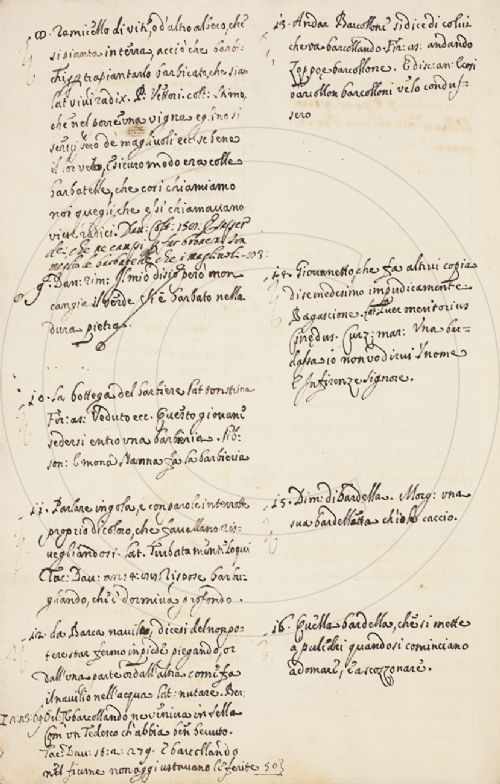 8. Ramicello di vite, o d'altro albero, che
si pianta in terra, acciò che barbi:
chi, e trapiantarlo barbicato, che sia
Lat. viviradix. P. Vettori: colt:
che nel porre una vigna eglino si
servissero de magliuoli ecc. se bene
sicuro modo era colle
barbatelle, che così chiamiamo
noi quegli, che e si chiamavano
viviradici. Dav: Colt: 150:
le barbatelle, che i magliuoli.
9. Dan: rim: Il mio disio però non
cangia il verde Si è barbato nella
dura pietra.
10. La bottega del barbiere Lat. tonstrina
Fir: as: Veduto ecc. Questo giovani
sedersi entro una barberia.
son: E mona Nanna fa la barbieria
11. Parlare in gola, e con parole interrotte
proprio di coloro, che favellano ris-
vegliandosi. Lat. Turbata mente loqui
Tac: Dav: ann: Rispose barbu-
gliando, ch'e' dormiva profondo.
12. da Barca navilio, dicesi del non po-
tere star fermo in piede piegando, or
dall'una parte or dall'altra com' fa
il navilio nell'acqua Lat: nutare. Ber:
barcollando ne veniva in sella
Com' un Tedesco ch'abbia ben bevuto.
Tac: Dav: st: 2. 279. E barcollando
nel fiume non aggiustavano le ferite 503
13. Andar Barcolloni si dice di colui
che va barcollando. Fir: as: andando
Zoppo e barcollone. E discan: Così
barcollon barcolloni ve lo condus-
sero
14. Giovanetto che fa altrui copia
di se medesimo impudicamente
Bagascione. Lat. Puer meritorius
Cinedus. Curz: mar: Una bar-
dassa io non vo dirvi 'l nome
E in firenze signore.
15. Dim: di Bardella. Morg: una
sua bardelletta ch'io caccio.
16. Quella bardella, che si mette
a puledri quando si cominciano
a domare, e a scozzonare.